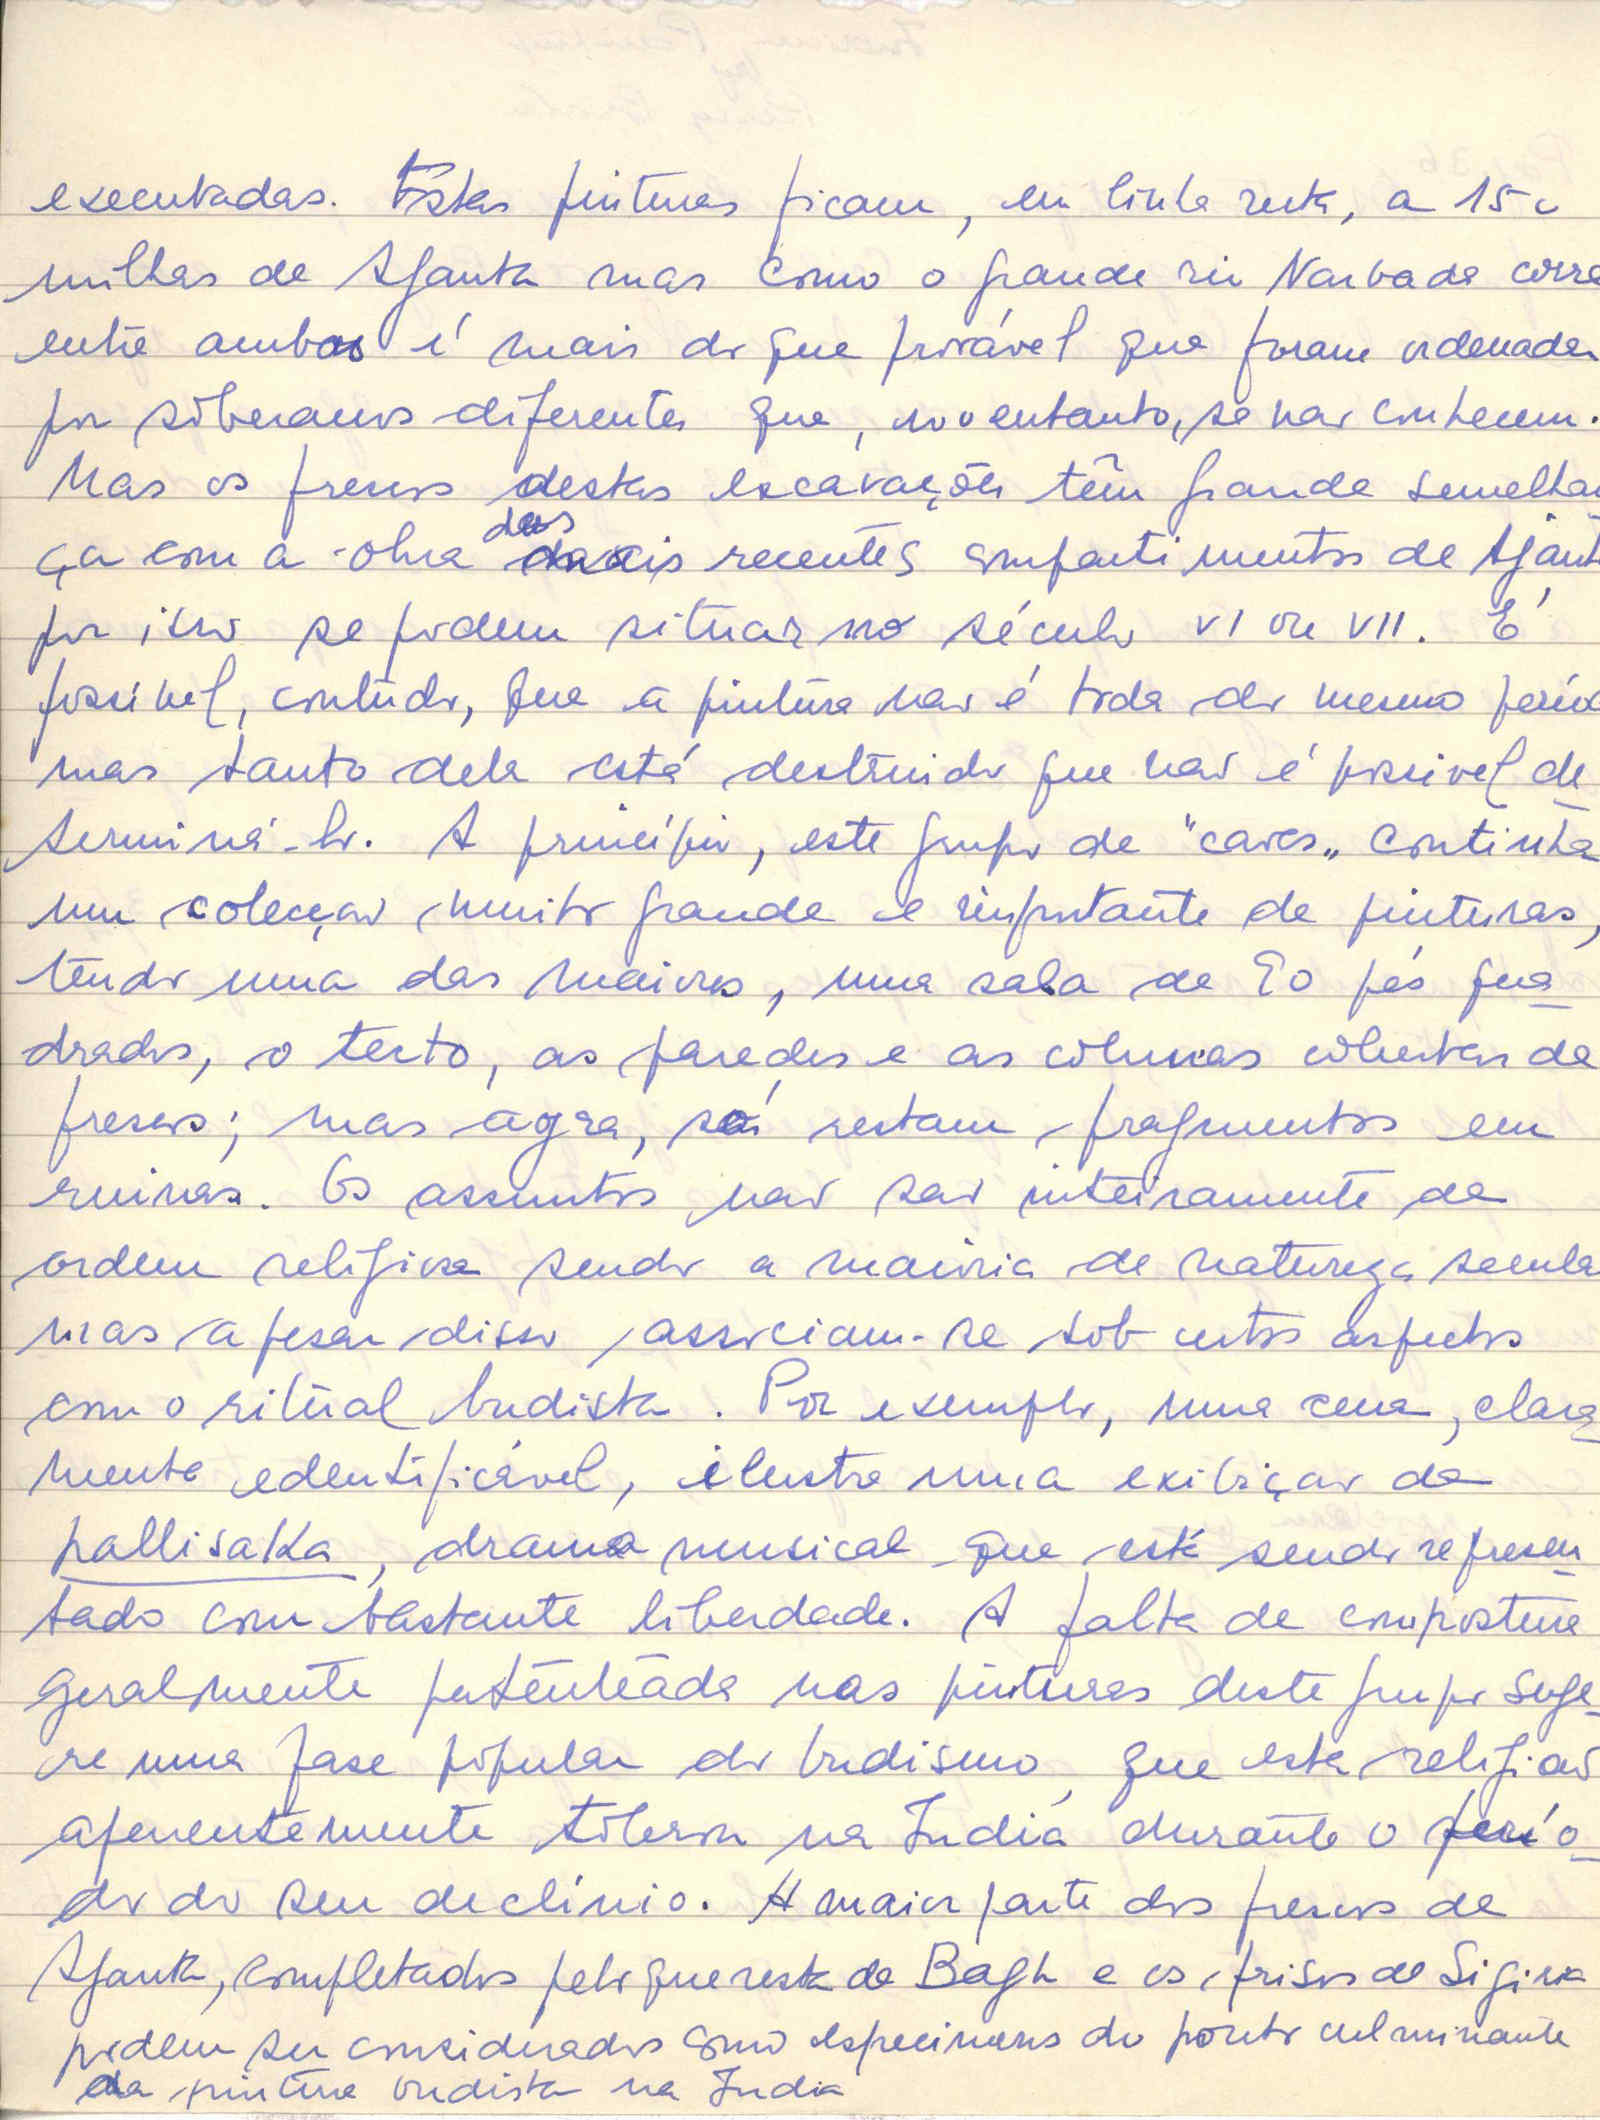 executadas. Estas pinturas ficam, em linha recta, a 150
milhas de Ajanta mas como o grande rio Narbada corre
entre ambas é mais do que provável que foram ordenadas
por soberanos diferentes que, no entanto, se não conhecem.
Mas os frescos destas escavações têm grande semelhan
ça com a obra das mais recentes compartimentos de Ajanta
por isso se podem situar no século VI ou VII. É
possivel, contudo, que a pintura não é toda do mesmo perío
mas tanto dela está destruido que não é possivel de
terminá-lo. A princípio, este grupo de "caves" continha
um colecção muito grande e importante de pinturas,
tendo uma das maiores, uma sala de 90 pés qua
drados, o tecto, as paredes e as colunas cobertas de
frescos; mas agora, só restam fragmentos em
ruinas. Os assuntos não são inteiramente de
ordem religiosa sendo a maioria de natureza secula
mas apesar disso associam-se sob certos aspectos
com o ritual budista. Por exemplo, uma cena, clara
mente edentificável, ilustra uma exibição da
hallisaka, drama musical que está sendo represen
tado com bastante liberdade. A falta de compostura
geralmente patenteada nas pinturas deste grupo suge
re uma fase popular do budismo, que esta religião
aparentemente tolerou na India durante o perío
do do seu declínio. A maior parte dos frescos de
Ajanta, completados pelo que resta de Bagh e os frisos de Sigiria
podem ser considerados como especimens do ponto culminante
da pintura budista na India